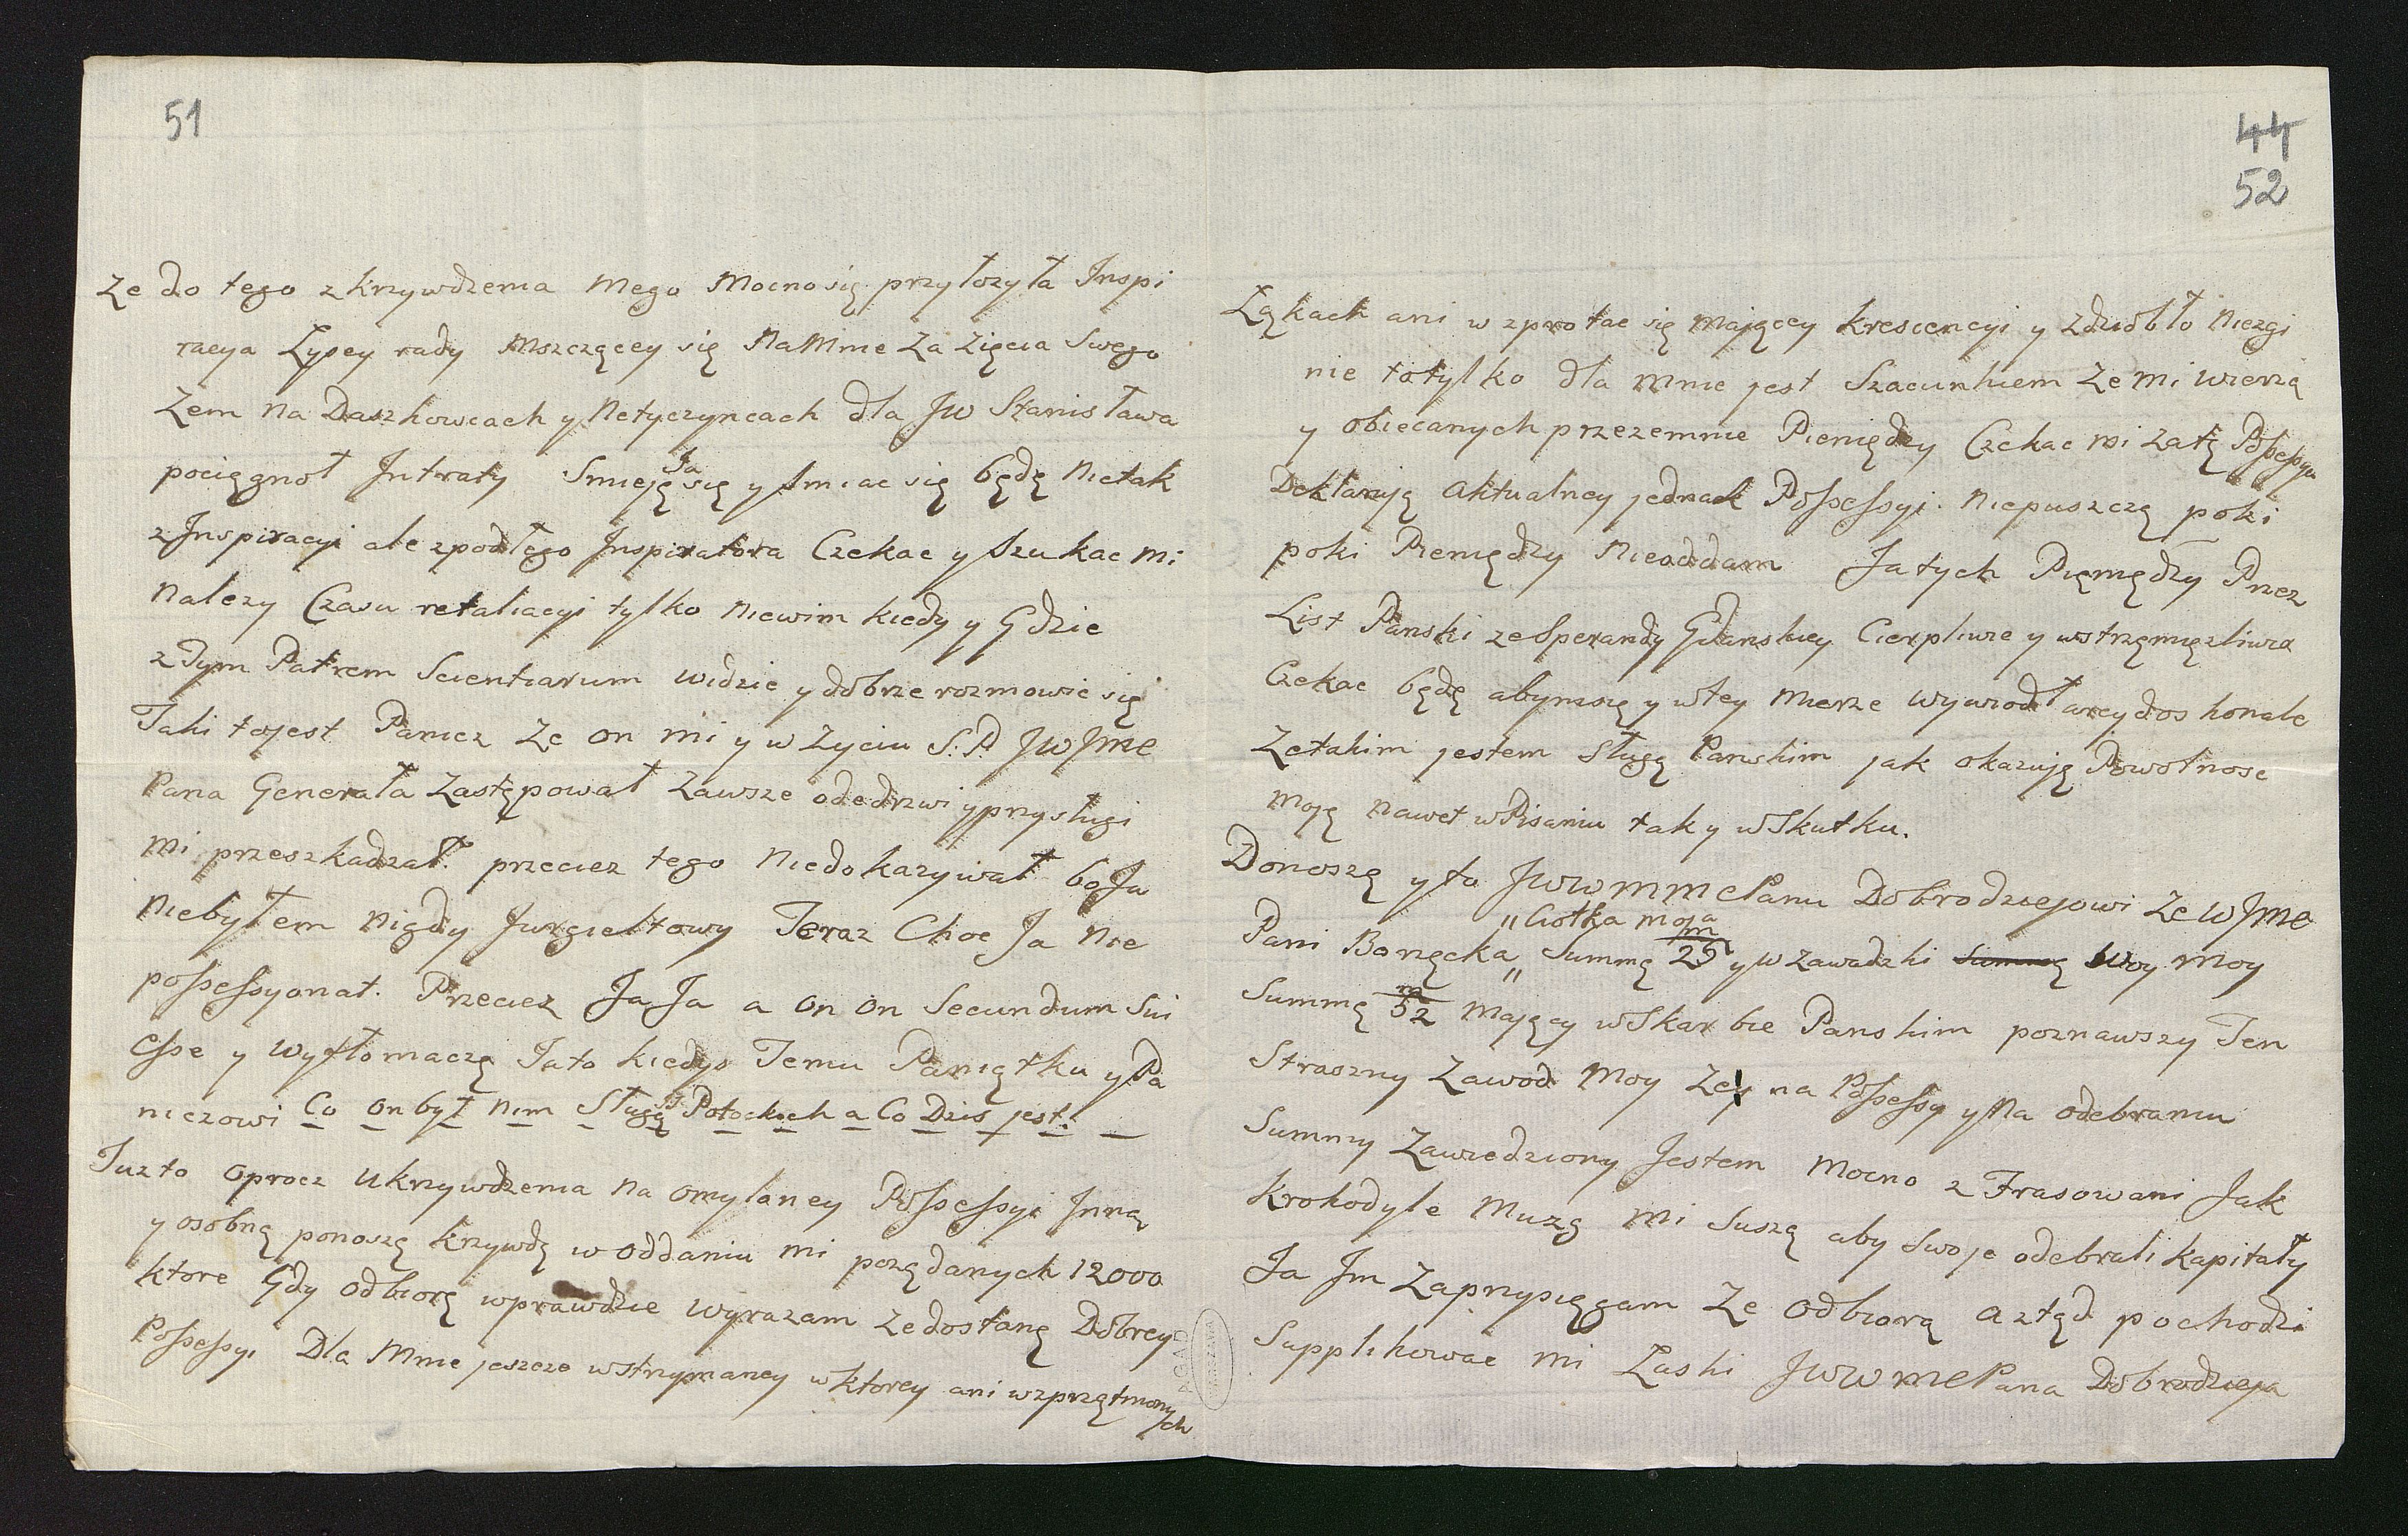 51
Ze do tego zkrzywdzenia mego Mocno się przyłozyła Inspi
racya Lypey rady Mszczącey się NaMnie Za Zięcia Swego
Zem na Daszkowcach y Netyczyncach dla JW Stanisława
pociągnoł Intraty Smieję Ja się y smiac się będę nietak
zInspiracyi ale zpodłego Inspiratora Czekac y Szukac mi
nalezy Czasu retaliacyi tylko niewim kiedy y Gdzie
zTym Patrem Scientiarum widzic y dobrze rozmowic się
Taki tojest Panicz Ze on mi y w Zyciu S.P. JWJme
Pana Generała Zastępował Zawsze ode drzwi yprzysługi
mi przeszkadzał. przeciez tego niedokazywał boJa
niebyłem nigdy Jurgieltowy Teraz Choc Ja nie
possessyonat. Przeciez Ja Ja a on on Secundum Sui
Esse y wytłomaczę Jato kiedys Temu Paniątku y Pa
niczowi Co on był nim Sługą Potockich a Co Dzis jest.
Juzto oprocz ukrzywdzenia na omylaney Possessyi Inną
y osobną ponoszę krzywdę w oddaniu mi poządanych 12000
ktore Gdy odbiorę wprawdzie wyrazam Ze dostanę Dobrey
Possessyi Dla Mnie jeszcze wstrzymaney w ktorey ani wzprzątnionych
44
52
Łąkach ani w zprotac się mającey krescencyi y Zdziobło niezgi
nie totylko dla mnie jest Szacunkiem Ze mi wierzą
y obiecanych przezemnie Pieniędzy Czekac mi Zatę Possessyą
Deklarują aktualney jednack Possessyi. niepuszczę poki
poki Pieniędzy nieoddam Jatych Pieniędzy Przez
List Panski ze Sperandy Gdanskiey Cierpliwie y wstrzęmięzliwie
Czekac będę abymsię y wtey mierze wywiodł arcydoskonale
Zetakim jestem Sługą Panskim jak okazuję Powolnosc
moję nawet wPisaniu tak y wSkutku.
Donoszę yto JWWMMePanu Dobrodziejowi Ze WJme
Pani Borzęcka „Ciotka moja„ Summę 25 m y W Zawadzki Summę Woy moy
Summę 52 m mający wSkarbie Panskim poznawszy Ten
Straszny Zawod moy Ze na Possessyi y Na odebraniu
Summy Zawiedziony Jestem Mocno zFrasowani Jak
krokodyle Muzg mi Suszą aby Swoje odebrali kapitały
Ja Im Zaprzysięgam Ze odbiorą a ztąd pochodzi
Supplikowac mi Łaski JWWMePana Dobrodzieja
AGAD
WARSZAWA